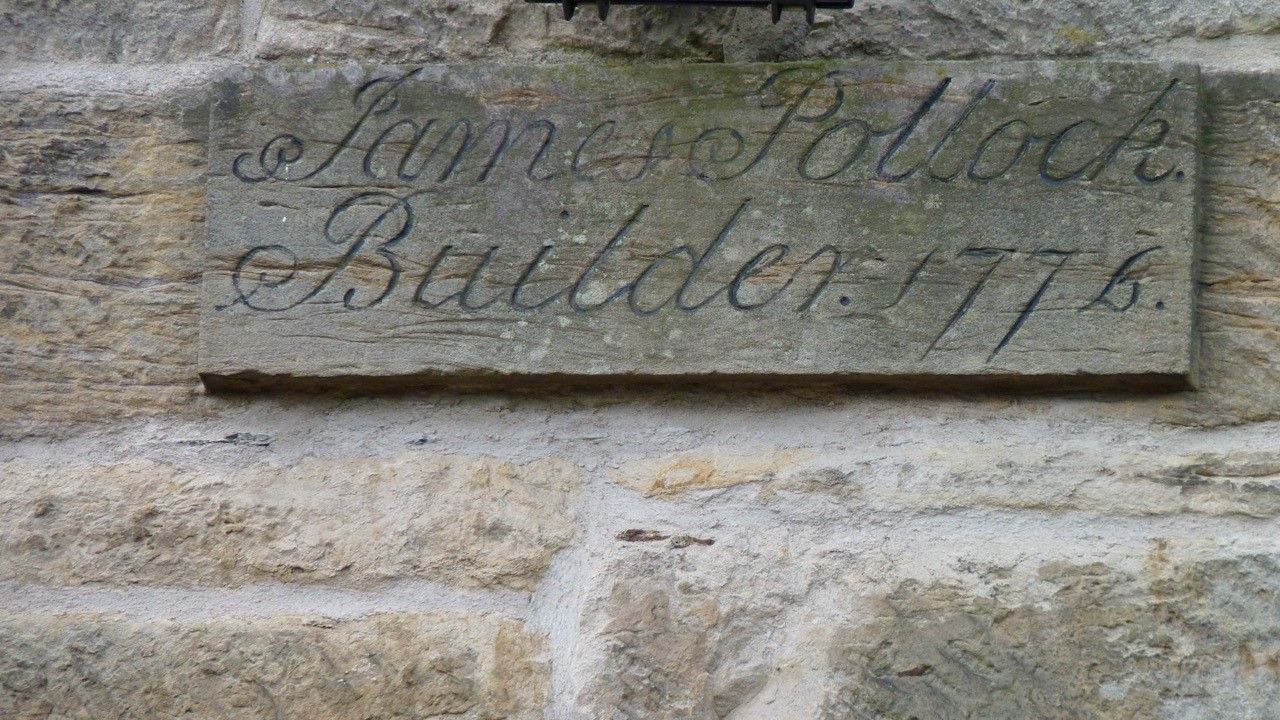 James Pollock.
Builder. 1776.